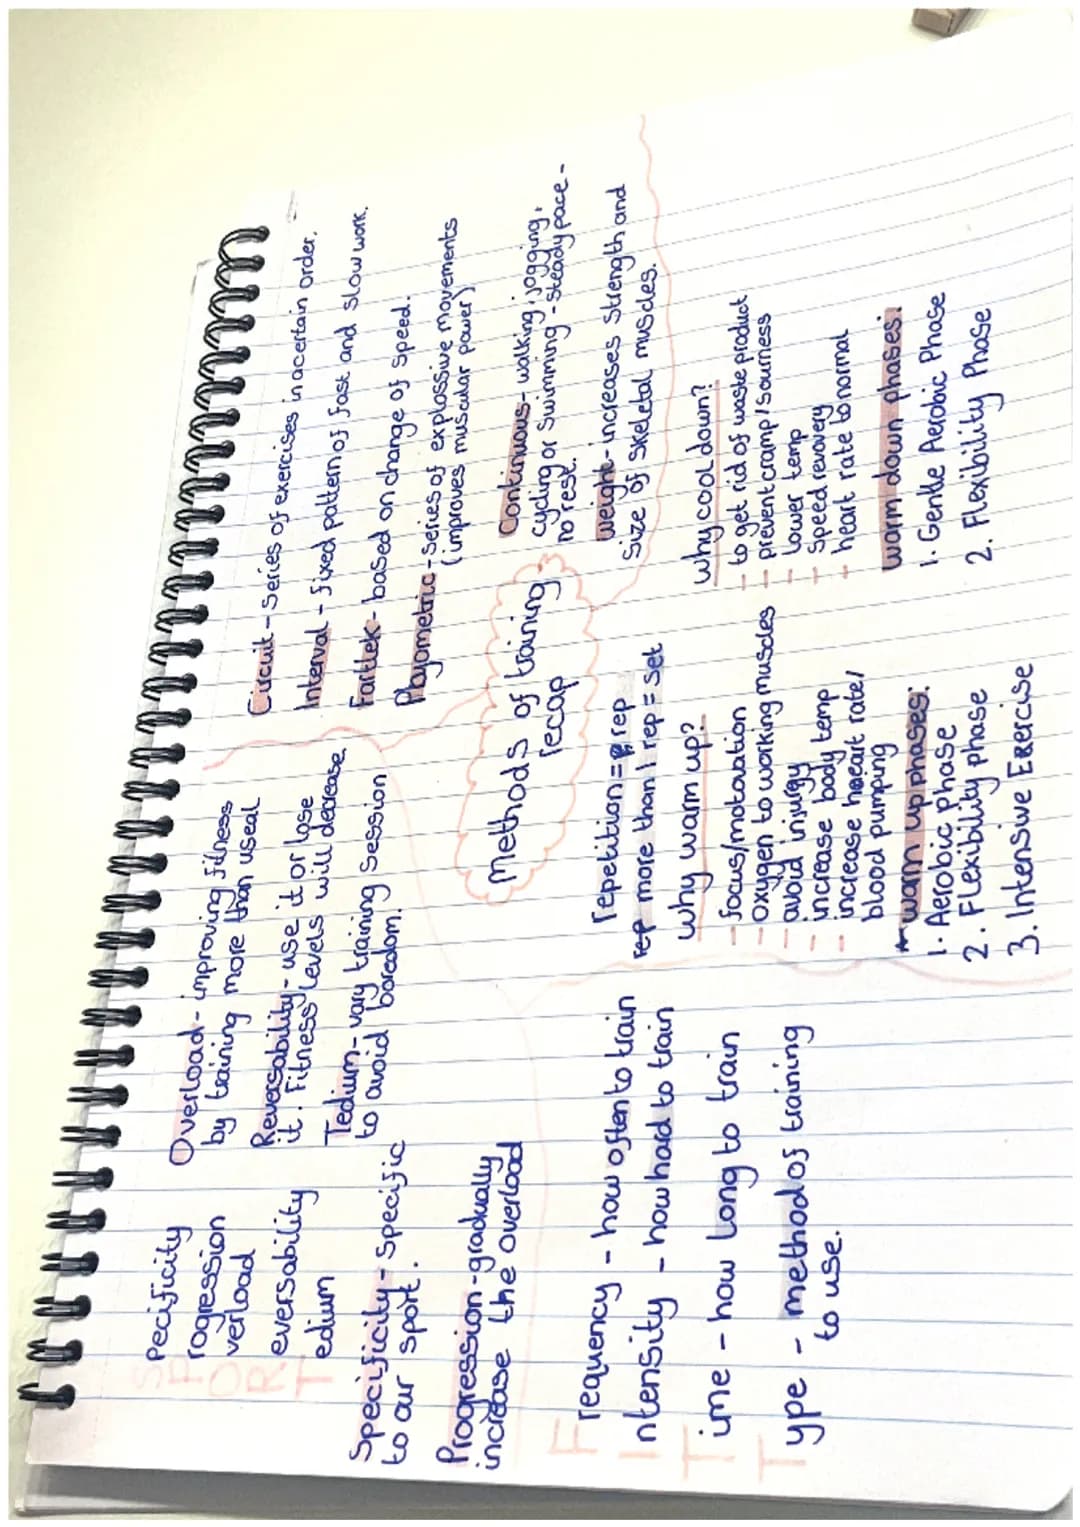 Specificity
Progression
Overload
Reversability
Tedium
Specificity - specific
to our sport.
Progression - gradually
increase the overload
Overload - improving fitness
by training more than useal
Reversability - use it or lose
it. Fitness levels will decrease
Tedium - vary training session
to avoid boredom.
Frequency - how often to train
Intensity - how hard to train
Time - how long to train
Type - method of training
to use.
Methods of training
recap
Circuit - series of exercises in a certain order.
Interval - fixed pattern of fast and slow work.
Fartlek - based on change of speed.
Playometric - series of explosive movements
(improves muscular power)
Continuous - walking, jogging,
cycling or swimming - steady pace -
no rest.
weight - increases strength and
size of skeletal muscles.
repetition = rep
rep more than 1 rep = set
why warm up?
- focus/motovation
- oxygen to working muscles
- avoid injurgy
- increase body temp
- increase heart rate/
blood pumping
warm up phases:
1. Aerobic phase
2. Flexibility phase
3. Intensive Exercise
why cool down?
- to get rid of waste product
- prevent cramp/sourness
- lower temp
- speed revovery
- heart rate to normal
warm down phases:
1. Gentle Aerobic Phase
2. Flexibility Phase